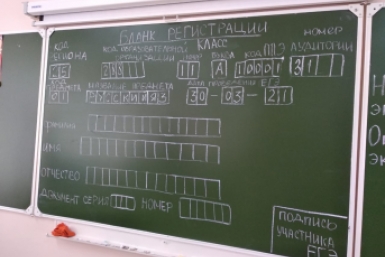 БЛАНК РЕГИСТРАЦИИ
КОД РЕГИОНА КОД ОБРАЗОВАТЕЛЬНОЙ ОРГАНИЗАЦИИ КЛАСС НОМЕР БУКВА КОД ППЭ НОМЕР АУДИТОРИИ
11 А 10001
КОД ПРЕДМЕТА НАЗВАНИЕ ПРЕДМЕТА ДАТА ПРОВЕДЕНИЯ ЕГЭ
01 РУССКИЙ ЯЗ 30-03-21
ФАМИЛИЯ
ИМЯ
ОТЧЕСТВО
ДОКУМЕНТ СЕРИЯ НОМЕР
ПОДПИСЬ
УЧАСТНИКА
ЕГЭ